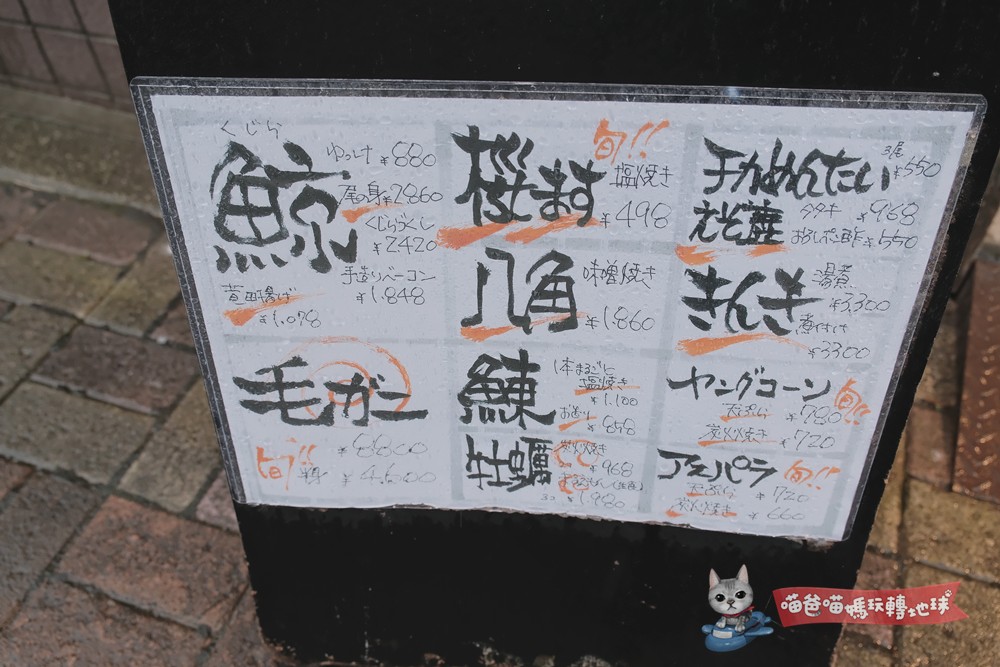 くじら
鯨
ゆっけ ¥880
尾の身 ¥2860
くじらづくし
¥2420
手造りベーコン
¥1.848
竜田揚げ
¥1.078
毛ガニ
旬!! ¥8800
半身 ¥4.600
桜ます
旬!!
塩焼き
¥498
八角
味噌焼き
¥1.860
鰊
1本まるごと
塩焼き
¥1.100
お造り
¥858
牡蠣
炭火焼き
¥968
3コ ¥1.980
チカめんたい
3尾 ¥550
えぞ鹿
タタキ ¥968
おろしポン酢 ¥550
きんき
湯煮
¥3,300
煮付け
¥3300
ヤングコーン
旬!!
天ぷら ¥780
炭火焼き ¥720
アスパラ
旬!!
天ぷら ¥720
炭火焼き ¥660
喵爸喵媽玩轉地球